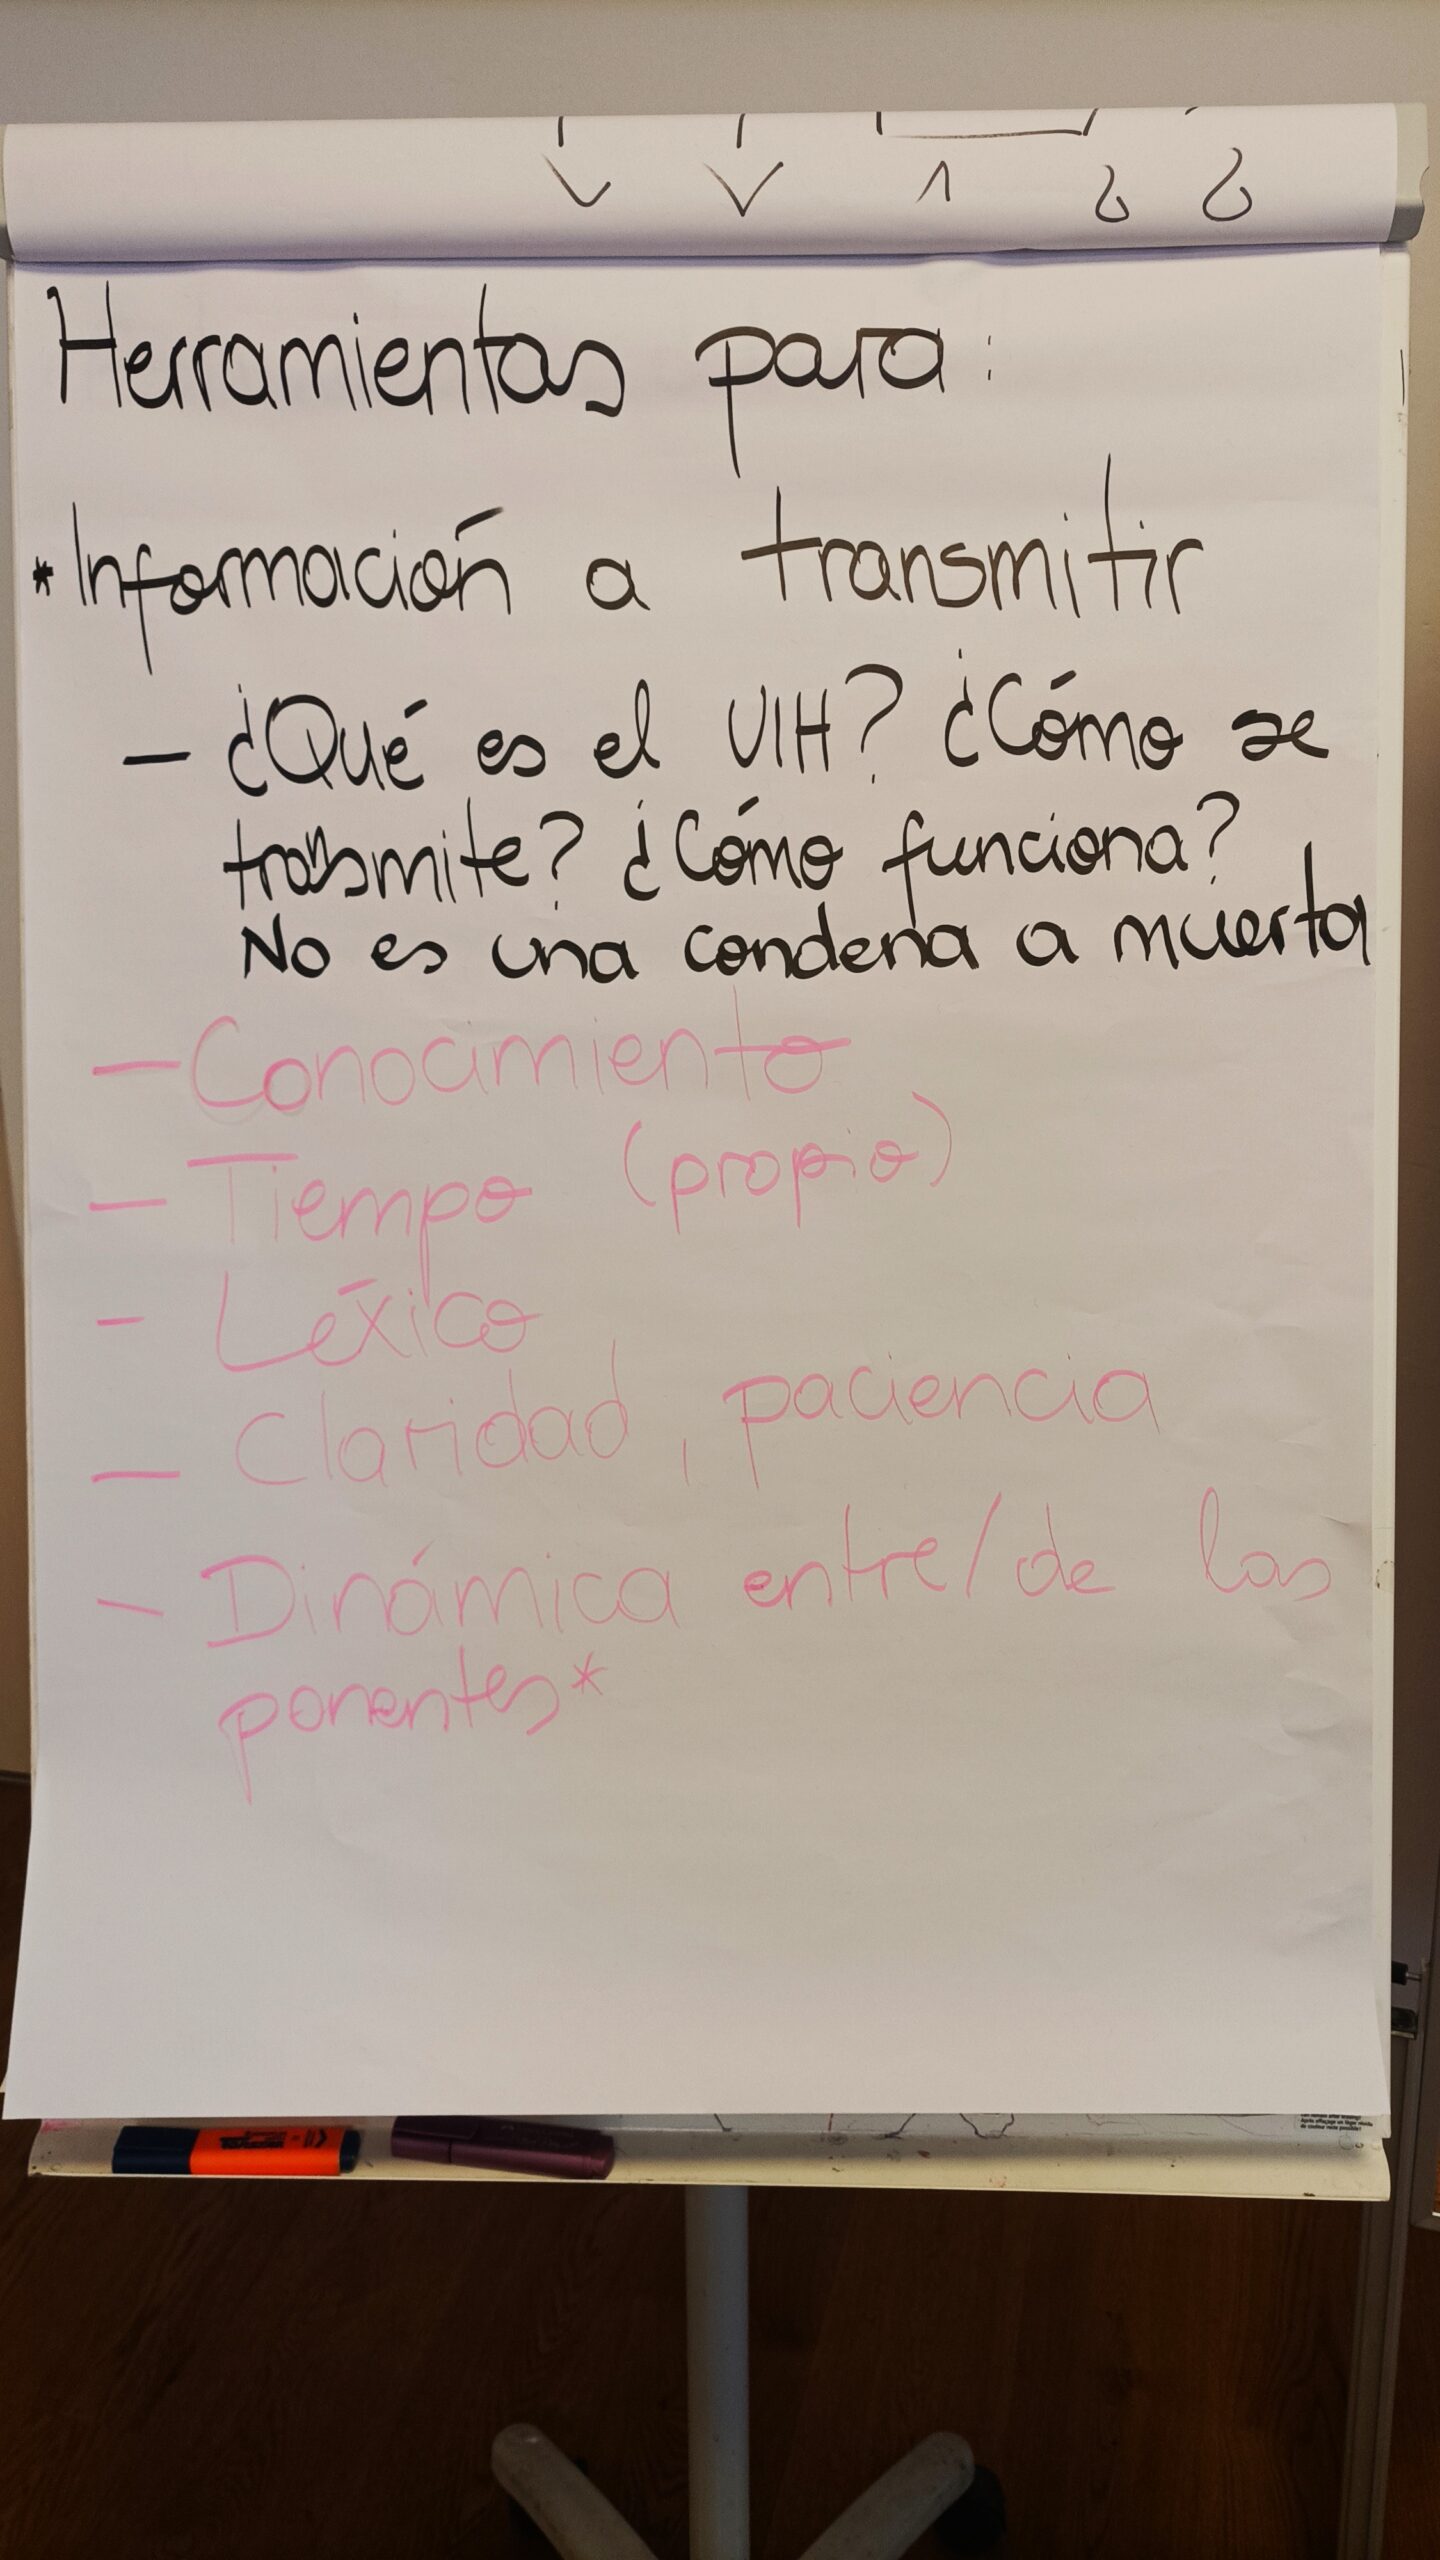 Herramientas para:
* Información a transmitir
- ¿Qué es el VIH? ¿Cómo se
transmite? ¿Cómo funciona?
No es una condena a muerta
- Conocimiento
- Tiempo (propio)
- Léxico
- Claridad, paciencia
- Dinámica entre/de las
ponentes*